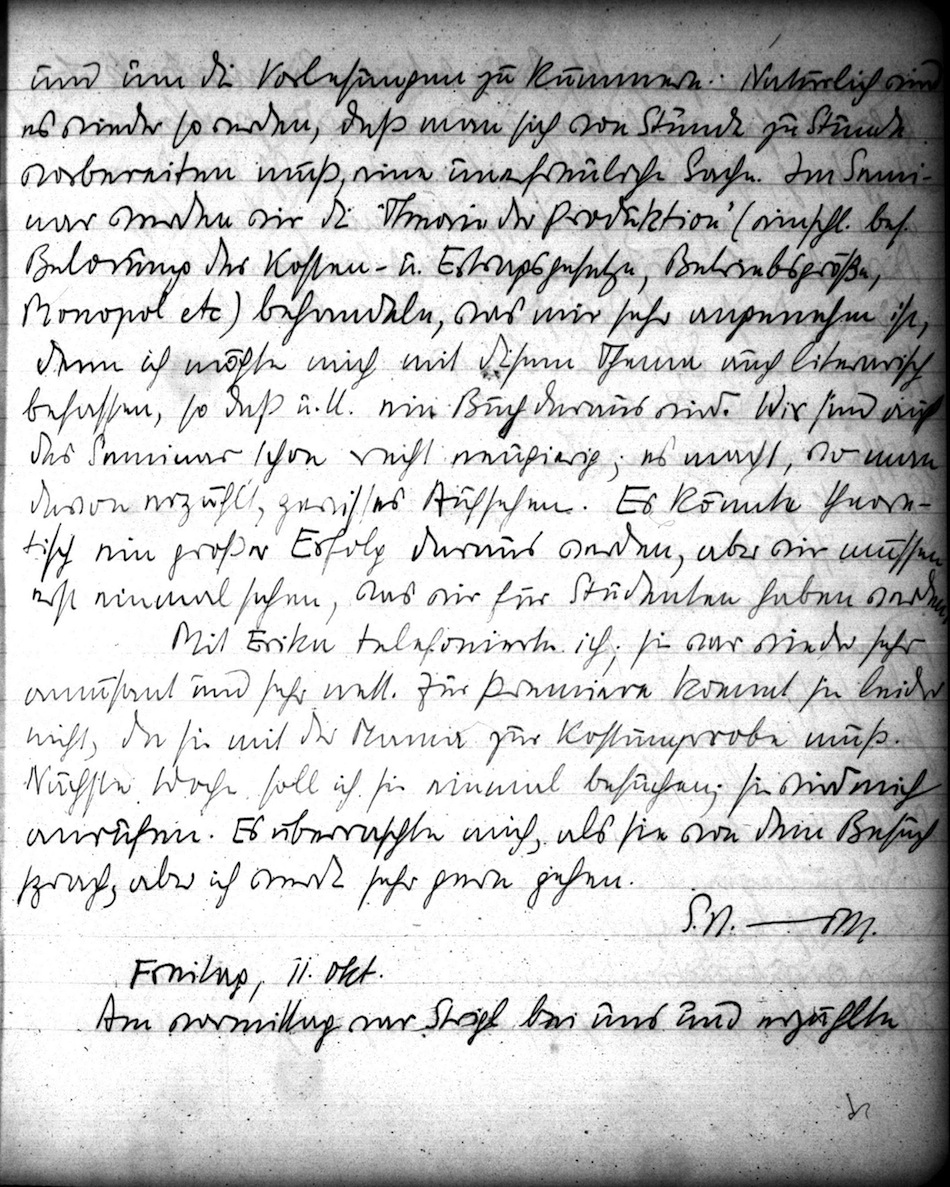 und um die Vorlesungen zu kümmern. Natürlich wird
es wieder so werden, daß man sich von Stunde zu Stunde
vorbereiten muß, eine unerfreuliche Sache. Im Semi-
nar werden wir die "Theorie der Produktion" (einschl. bes.
Betonung der Kosten- u. Ertragsgesetze, Betriebsgröße,
Monopol etc) behandeln, was mir sehr angenehm ist,
denn ich möchte mich mit diesem Thema auch literarisch
befassen, so daß u.U. ein Buch daraus wird. Wir sind auf
das Seminar schon recht neugierig; es macht, wo man
davon erzählt, gewisses Aufsehen. Es könnte theore-
tisch ein großer Erfolg daraus werden, aber wir müssen
erst einmal sehen, was wir für Studenten haben werden.
Mit Erika telefonierte ich; sie war wieder sehr
amüsant und sehr nett. Zur Premiere kommt sie leider
nicht, da sie mit der Mama zur Kostümprobe muß.
Nächste Woche soll ich sie einmal besuchen; sie wird mich
anrufen. Es überraschte mich, als sie von dem Besuch
sprach, aber ich werde sehr gern gehen.
Freitag, 11. Okt.
Am vormittag war Strigl bei uns und erzählte